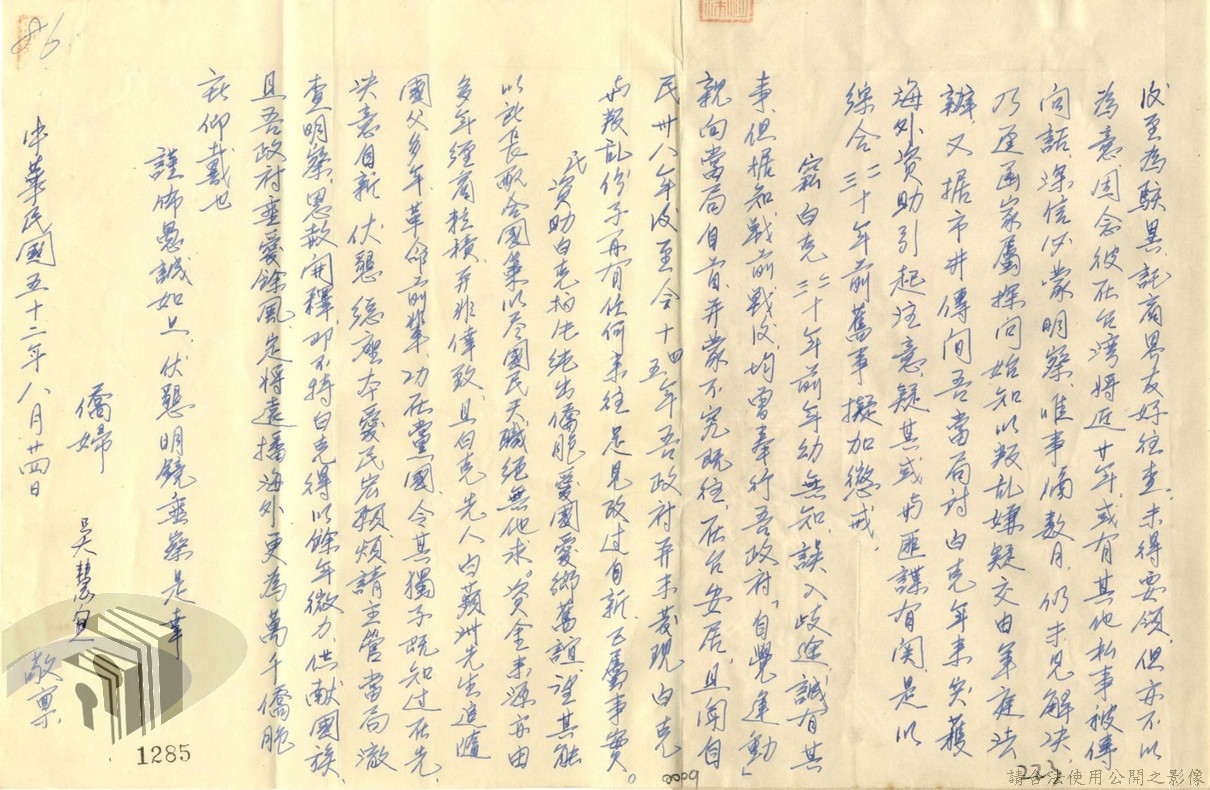 後至為駭異,託商界友好往查,未得要領,但亦不以
為意,因念彼在台灣將近廿年,或有其他私事被傳
問話,深信必蒙明察,唯事隔數月,仍未見解決
乃逕函家屬探問始知以叛乱嫌疑交由軍庭法
辦,又据市井傳聞吾當局討白克年來突獲
海外資助引起注意,疑其或與匪諜有関,是以
綜合二三十年前舊事擬加懲戒.
竊白克二三十年前年幼無知,誤入歧途,誠有其
事,但据知戰前戰後,均曾奉行吾政府「自覺運動」
親向當局自首,并蒙不究既往,在台安居,且聞自
民卅八年後至今十四五年吾政府并未發現白克
與叛乱份子再有任何來往足見改过自新已屬事實。
民資助白克拍片純出僑胞愛國愛鄉舊誼,望其能
以此長配合國策以尽國民天職絕無他求。資金來源亦由
多年經商積,并非倖致,且白克先人白蘋洲先生追隨
國父多年,革命前輩,功在黨國,今其獨子既知过在先,
決意自新,伏懇總座本愛民宏願,煩請主管當局澈
查明察,恩赦開釋,即不特白克得以餘年微力,供献國族,
且吾政府重愛餘風,定將遠播海外更為萬千僑胞
欽仰戴也
謹佈愚誠如上,伏懇明鏡垂察是幸
僑婦 吳慧 敬禀
中華民國五十二年八月廿四日
86
1285
0009
223
請合法使用公開之影像